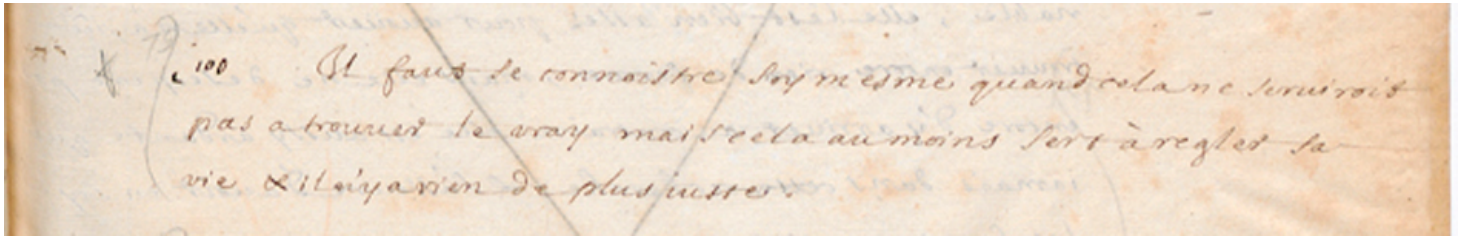 100 Il faut se connoistre soy mesme quand cela ne seruiroit
pas a trouuer le vray mais cela au moins sert à regler sa
vie & il n'y a rien de plus iuste.